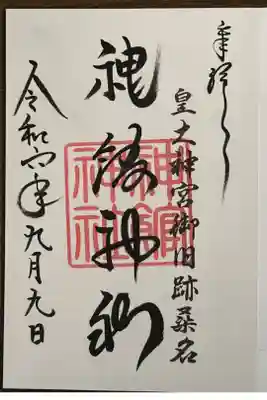 奉拝
皇大神宮御旧跡桑名
神館神社
神館神社
令和六年九月九日